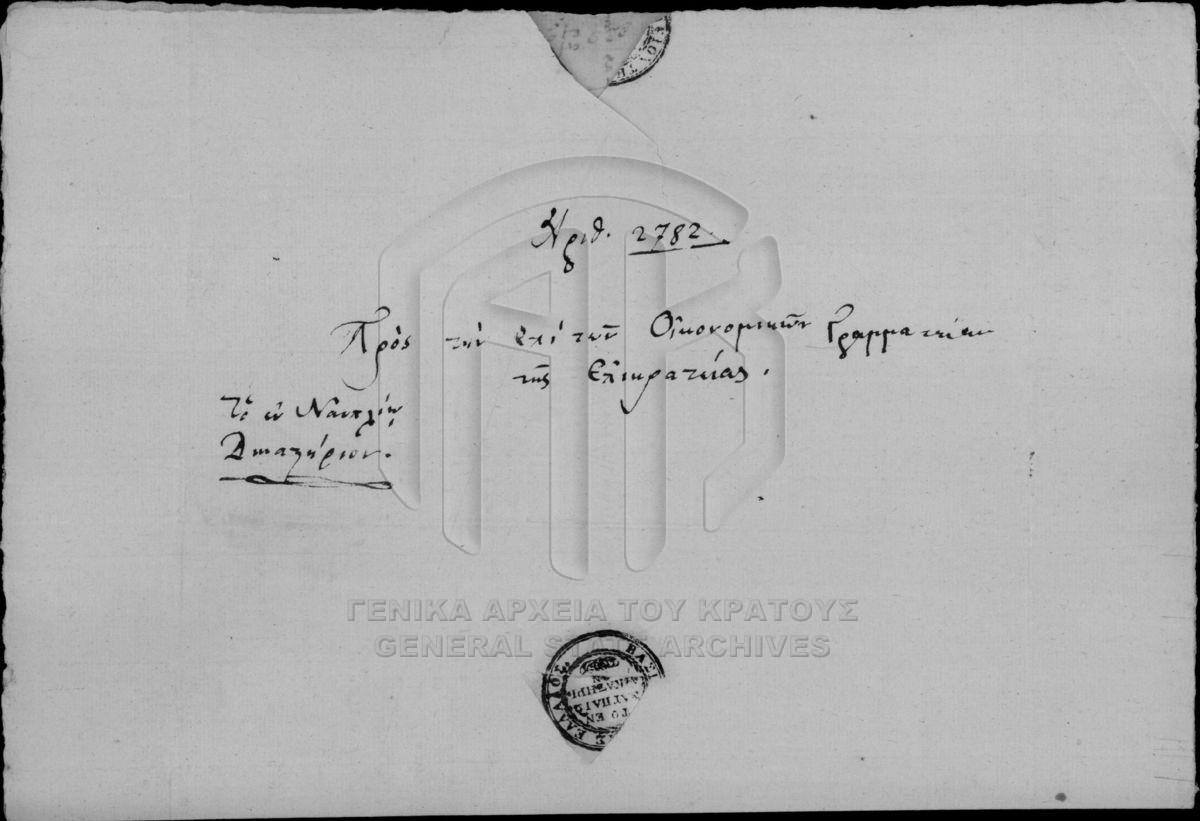 Ἀριθ. 2782.
Πρὸς τὴν ἐπὶ τῶν Οἰκονομικῶν Γραμματείαν
τῆς Ἐπικρατείας.
Τὸ ἐν Ναυπλίῳ
Δικαστήριον.
ΓΕΝΙΚΑ ΑΡΧΕΙΑ ΤΟΥ ΚΡΑΤΟΥΣ
GENERAL STATE ARCHIVES
ΒΑΣΙ
ΕΛΛΑΔΟΣ
ΤΟ ΕΝ